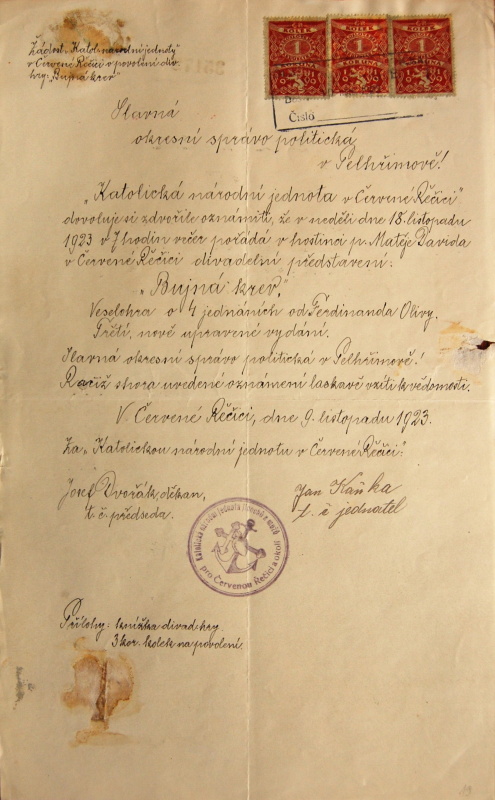 Žádost „Katol. národní jednoty"
v Červené Řečici o povolení div.
hry: „Bujná krev"
KOLEK
1
KORUNA
KOLEK
1
KORUNA
KOLEK
1
KORUNA
Číslo
Slavná
okresní správo politická
v Pelhřimově!
„Katolická národní jednota v Červené Řečici"
dovoluje si zdvořile oznámiti, že v neděli dne 18. listopadu
1923 v 7 hodin večer pořádá v hostinci p. Matěje Davida
v Červené Řečici divadelní představení:
„Bujná krev."
Veselohra o 4 jednáních od Ferdinanda Olivy.
Třetí, nově upravené vydání.
Slavná okresní správo politická v Pelhřimově!
Račiž shora uvedené oznámení laskavě vzíti k vědomosti.
V Červené Řečici, dne 9. listopadu 1923.
Za „Katolickou národní jednotu v Červené Řečici":
Josef Dvořák, děkan,
t. č. předseda.
Jan Kaňka
t. č jednatel
Katolická národní jednota
pro Červenou Řečici a okolí
Přílohy: knížka divad. hry
3 kor. kolek na povolení.
19